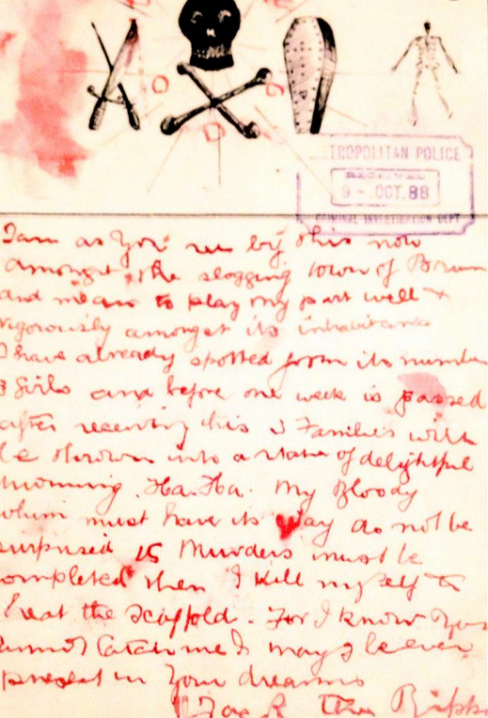 TROPOLITAN POLICE
RECEIVED
9 - OCT. 88
CRIMINAL INVESTIGATION DEPT
I am as you see by this now
amongst the slogging town of Brum
and mean to play my part well &
vigorously amongst its inhabitants
I have already spotted from its number
3 Girls and before one week is passed
after receiving this 3 Families will
be thrown into a state of delightful
mourning. Ha. Ha. My Bloody
whim must have its way do not be
surprised 15 Murders must be
completed then I kill myself to
cheat the scaffold. For I know you
cannot Catch me & may I be ever
present in your dreams
Jack the Ripper